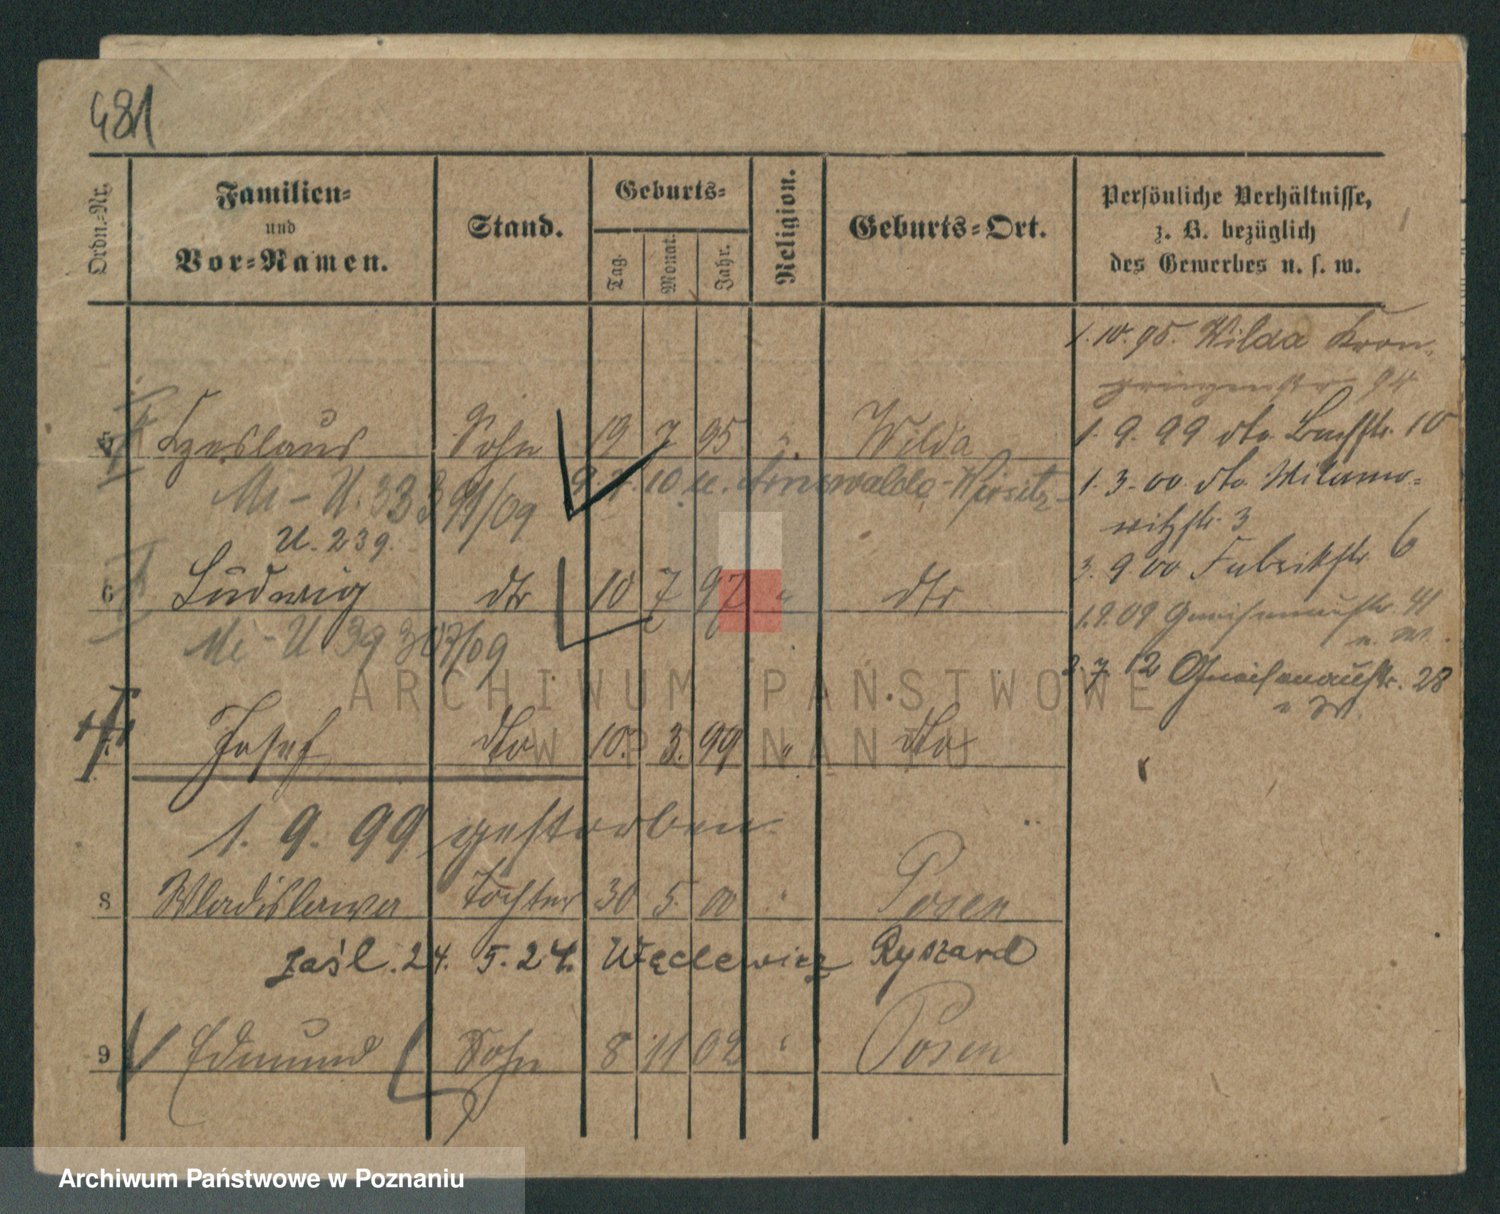 481
Ordn.-Nr.
Familien-
und
Vor-Namen.
Stand.
Geburts-
Tag.
Monat.
Jahr.
Religion.
Geburts-Ort.
Persönliche Verhältnisse,
z. B. bezüglich
des Gewerbes u. s. w.
1. 10. 95. Wilda Kron-
prinzenstr 94
5 Czeslaus Sohn 19 7 95 " Wilda
1. 9. 99 dto Bachstr. 10
Me-U. 333 91/09 9.7.10 u. Arnswalde-Wirsitz-
1. 3. 00 dto Wilamo-
witzstr. 3
U. 239.
3. 9. 00 Fabrikstr. 6
6 Ludwig dto 10 7 97 " dto
1.9.09 Gneisenaustr. 41
Me-U 39 307/09
2. 7. 12 Gneisenaustr. 28
Josef dto 10. 3. 99 " dto
1. 9. 99 gestorben
8 Wladislawa Tochter 30 5. 00 " Posen
zaśl. 24. 5. 24. Węclewicz Ryszard
9 Edmund Sohn 8 11 02 " Posen
ARCHIWUM PAŃSTWOWE
W POZNANIU
Archiwum Państwowe w Poznaniu